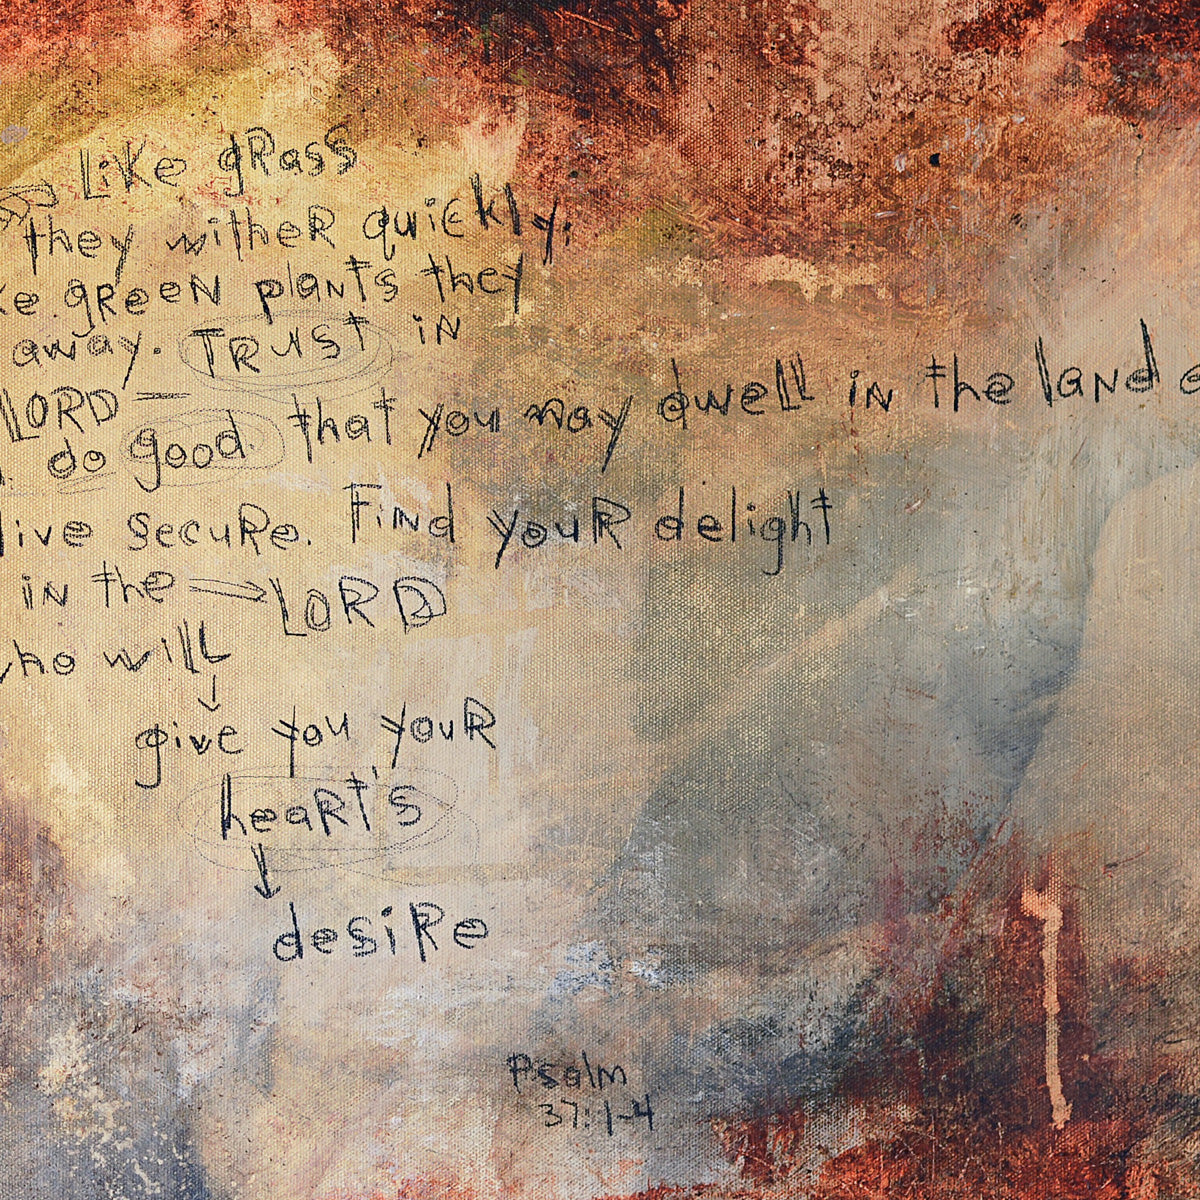 Like gRass
they witheR quickly;
ke gReeN plaNts they
away. TRUST iN
LORD
do good that you may dwell iN the laNd
live secuRe. FiNd youR delight
iN the LORD
who will
give you youR
heaRt's
desiRe
Psalm
37:1-4